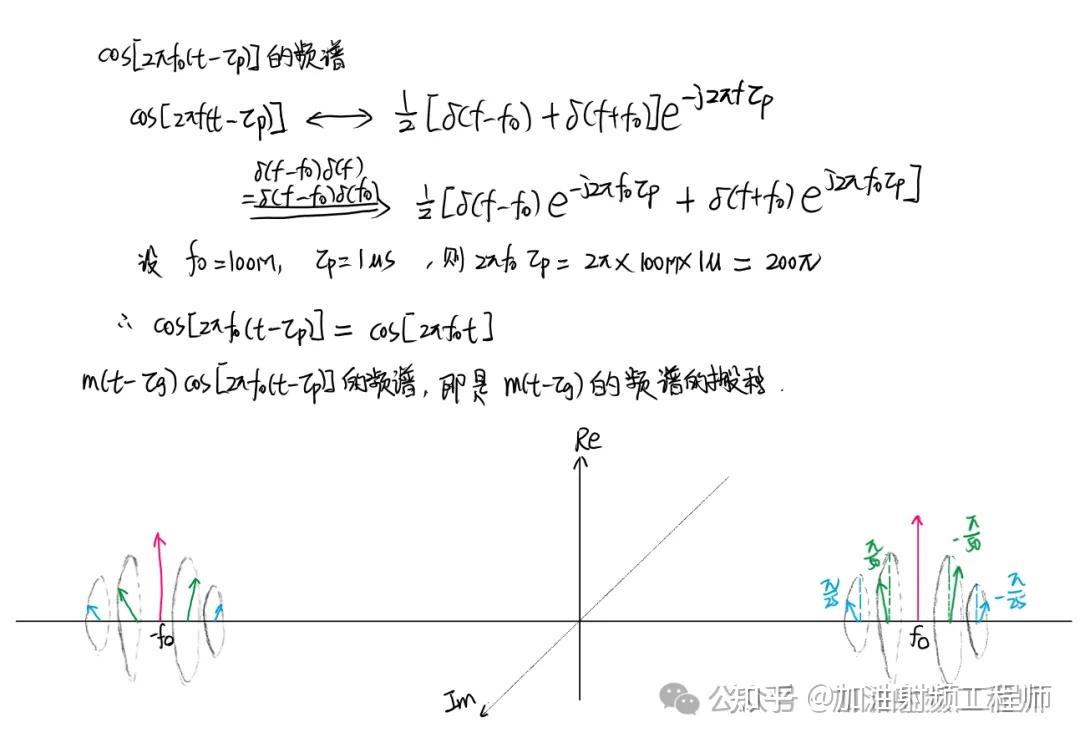 cos[2πf₀(t-τp)]的频谱
cos[2πf(t-τp)] ⟷ 1/2[δ(f-f₀)+δ(f+f₀)]e^{-j2πfτp}
δ(f-f₀)δ(f)
=δ(f-f₀)δ(f₀)
1/2[δ(f-f₀)e^{-j2πf₀τp} + δ(f+f₀)e^{j2πf₀τp}]
设 f₀=100M, τp=1us ,则2πf₀τp = 2π×100M×1u = 200π
∴ cos[2πf₀(t-τp)] = cos[2πf₀t]
m(t-τg)cos[2πf₀(t-τp)]的频谱,即是 m(t-τg)的频谱的搬移.
Re
π/25
π/50
-π/50
-π/25
-f₀
f₀
Im
公
知乎 @加油射频工程师